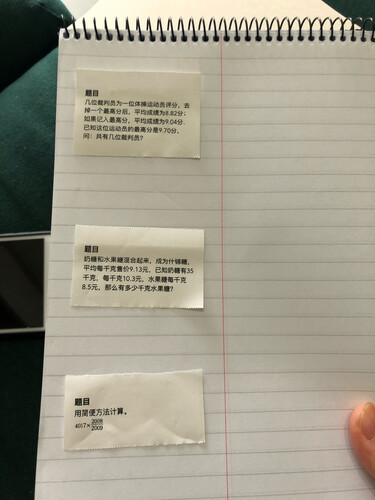 题目
几位裁判员为一位体操运动员评分，去
掉一个最高分后，平均成绩为8.82分；
如果记入最高分，平均成绩为9.04分.
已知这位运动员的最高分是9.70分，
问：共有几位裁判员？
题目
奶糖和水果糖混合起来，成为什锦糖，
平均每千克售价9.13元，已知奶糖有35
千克，每千克10.3元，水果糖每千克
8.5元，那么有多少千克水果糖？
题目
用简便方法计算。
4017×2008/2009